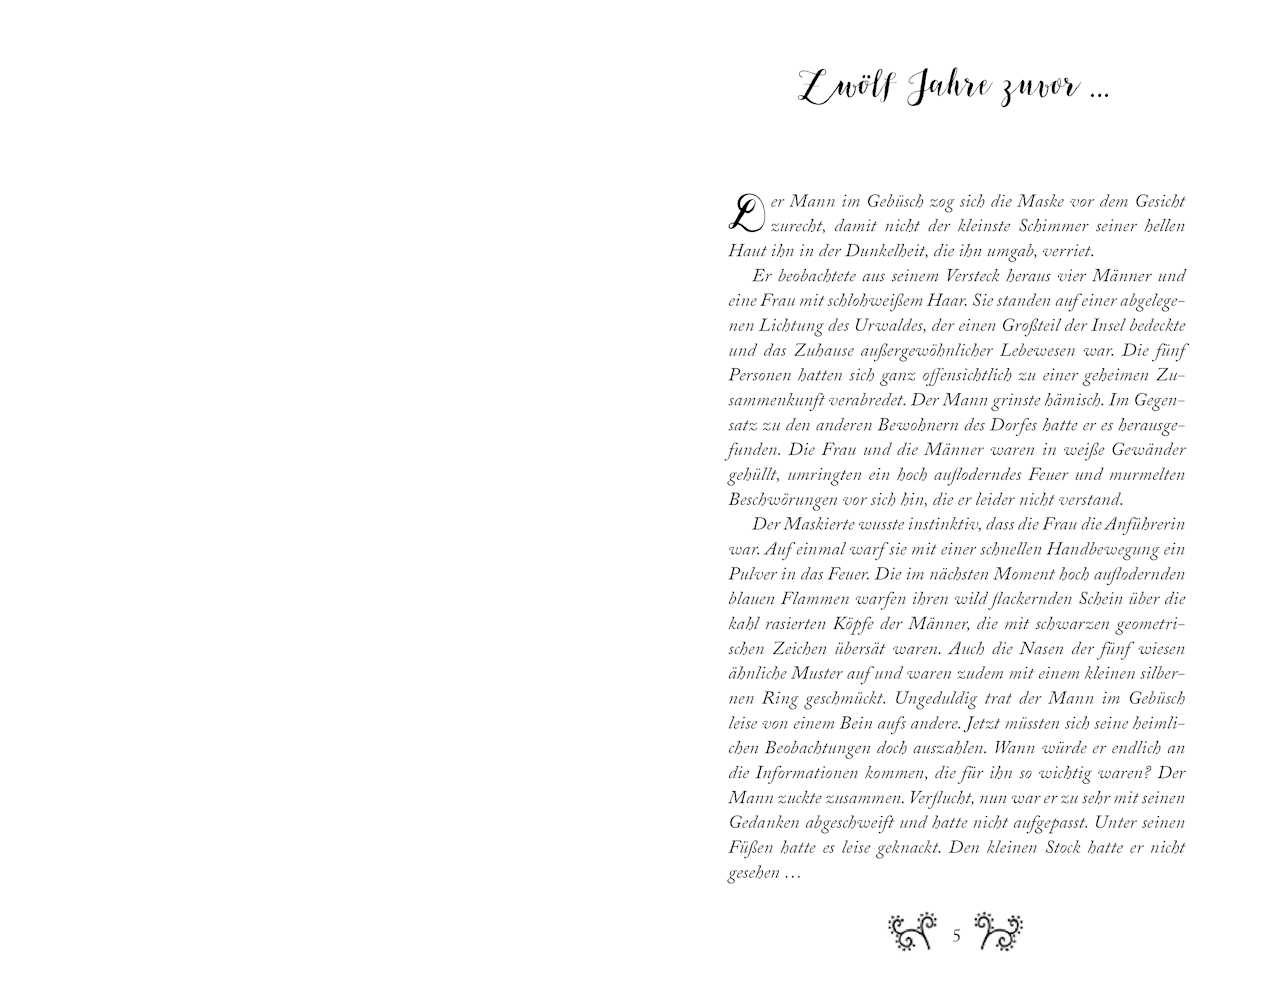 Zwölf Jahre zuvor ...
Der Mann im Gebüsch zog sich die Maske vor dem Gesicht
zurecht, damit nicht der kleinste Schimmer seiner hellen
Haut ihn in der Dunkelheit, die ihn umgab, verriet.
Er beobachtete aus seinem Versteck heraus vier Männer und
eine Frau mit schlohweißem Haar. Sie standen auf einer abgelege-
nen Lichtung des Urwaldes, der einen Großteil der Insel bedeckte
und das Zuhause außergewöhnlicher Lebewesen war. Die fünf
Personen hatten sich ganz offensichtlich zu einer geheimen Zu-
sammenkunft verabredet. Der Mann grinste hämisch. Im Gegen-
satz zu den anderen Bewohnern des Dorfes hatte er es herausge-
funden. Die Frau und die Männer waren in weiße Gewänder
gehüllt, umringten ein hoch aufloderndes Feuer und murmelten
Beschwörungen vor sich hin, die er leider nicht verstand.
Der Maskierte wusste instinktiv, dass die Frau die Anführerin
war. Auf einmal warf sie mit einer schnellen Handbewegung ein
Pulver in das Feuer. Die im nächsten Moment hoch auflodernden
blauen Flammen warfen ihren wild flackernden Schein über die
kahl rasierten Köpfe der Männer, die mit schwarzen geometri-
schen Zeichen übersät waren. Auch die Nasen der fünf wiesen
ähnliche Muster auf und waren zudem mit einem kleinen silber-
nen Ring geschmückt. Ungeduldig trat der Mann im Gebüsch
leise von einem Bein aufs andere. Jetzt müssten sich seine heimli-
chen Beobachtungen doch auszahlen. Wann würde er endlich an
die Informationen kommen, die für ihn so wichtig waren? Der
Mann zuckte zusammen. Verflucht, nun war er zu sehr mit seinen
Gedanken abgeschweift und hatte nicht aufgepasst. Unter seinen
Füßen hatte es leise geknackt. Den kleinen Stock hatte er nicht
gesehen …
5